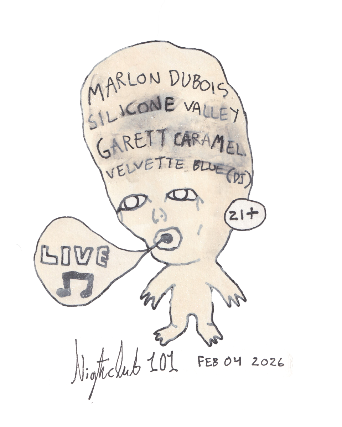 MARLON DUBOIS
SILICONE VALLEY
GARETT CARAMEL
VELVETTE BLUE (DJ)
21+
LIVE
Nightclub 101 FEB 04 2026